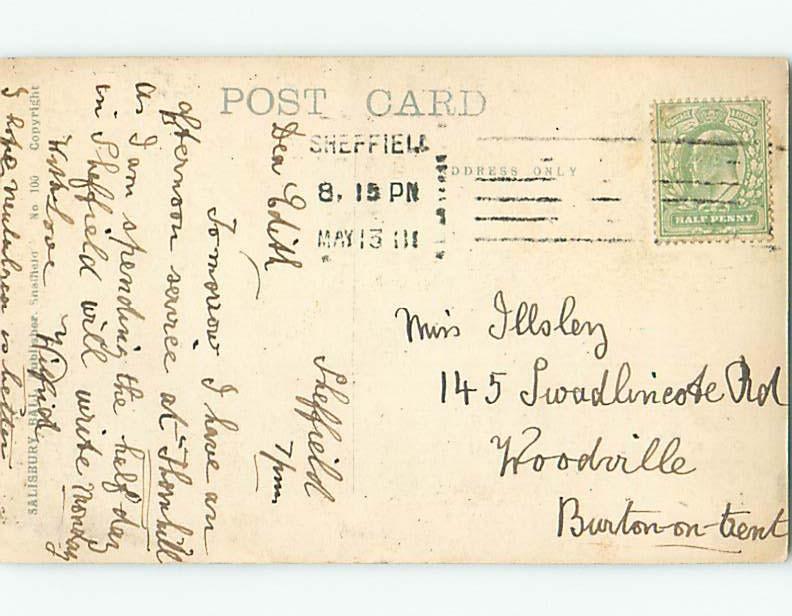 POST CARD
ADDRESS ONLY
SHEFFIELD
8. 15 PM
MAY 13 11
HALF PENNY
Miss Illsley
145 Swadlincote Rd
Woodville
Burton-on-Trent
Sheffield
7pm
Dear Edith
Tomorrow I have an
afternoon service at Thornhill
as I am spending the half day
in Sheffield will write Monday
With love
Wilfrid
I hope neuralgia is better
SALISBURY BALL Publisher. Sheffield No 100 Copyright